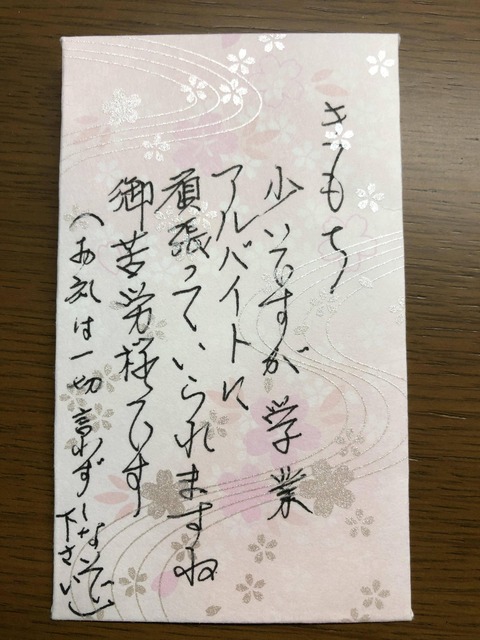 きもち
少いですが学業
アルバイトに
頑張っていられますね
御苦労様です
(お礼は一切言わずしないで下さい)